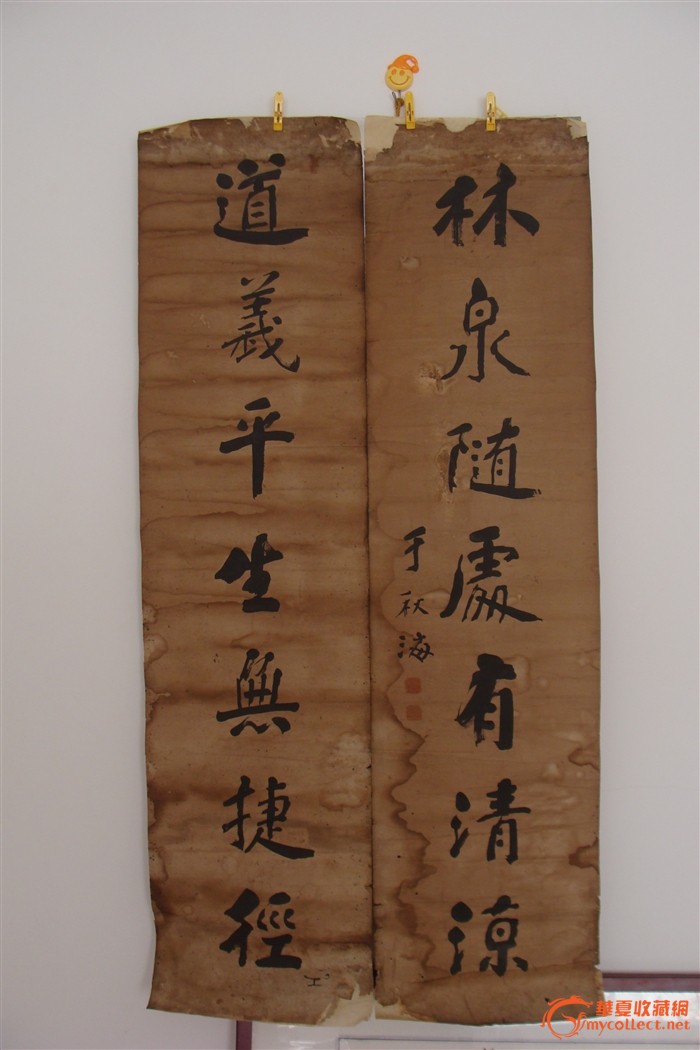 林泉隨處有清涼
道義平生無捷徑
于秋海
華夏收藏網
mycollect.net